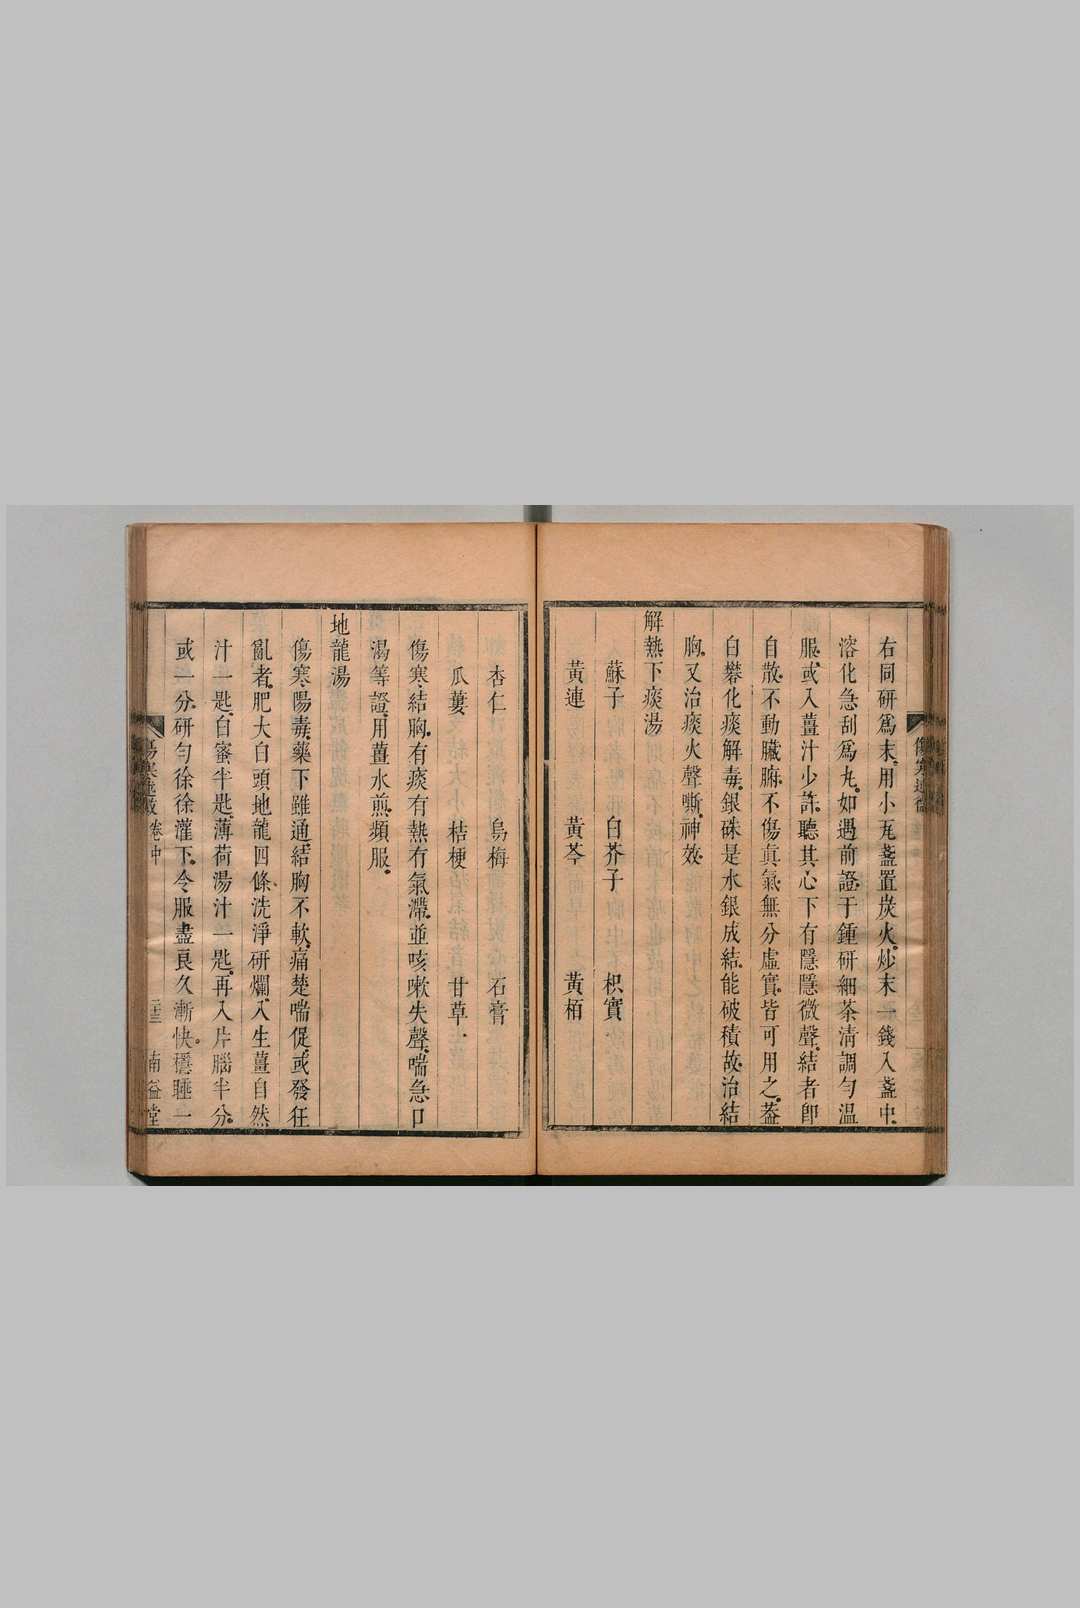 右同研爲末。用小瓦盞置炭火。炒末一錢入盞中。
溶化。急刮爲丸。如遇前證。于鍾研細。茶淸調勻。溫
服。或入薑汁少許。聽其心下有隱隱微聲。結者卽
自散。不動臟腑。不傷眞氣。無分虛實。皆可用之。蓋
白礬化痰解毒。銀硃是水銀成結。能破積。故治結
胸。又治痰火聲嘶。神效。
解熱下痰湯
蘇子　白芥子　枳實
黃連　黃芩　黃栢
杏仁　烏梅　石膏
瓜蔞　桔梗　甘草
傷寒結胸。有痰有熱有氣滯。並咳嗽失聲。喘急口
渴等證。用薑水煎。頻服。
地龍湯
傷寒陽毒。藥下雖通。結胸不軟。痛楚喘促。或發狂
亂者。肥大白頭地龍四條。洗淨研爛。入生薑自然
汁一匙。白蜜半匙。薄荷湯汁一匙。再入片腦半分。
或一分。研勻。徐徐灌下。令服盡。良久漸快。穩睡一
卷中